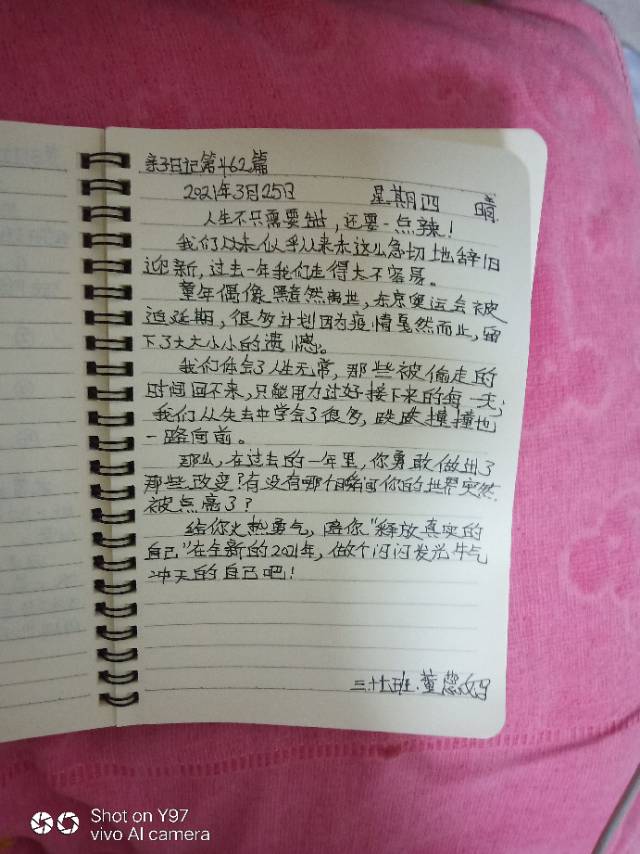 亲子日记第462篇
2021年3月25日 星期四 晴
人生不只需要甜，还要一点辣！
我们从未似乎从来未这么急切地辞旧
迎新，过去一年我们走得太不容易。
童年偶像黯然离世，东京奥运会被
迫延期，很多计划因为疫情戛然而止，留
下了大大小小的遗憾。
我们体会了人生无常，那些被偷走的
时间回不来，只能用力过好接下来的每一天；
我们从失去中学会了很多，跌跌撞撞也
一路向前。
那么，在过去的一年里，你勇敢做出了
那些改变？有没有哪个瞬间你的世界突然
被点亮了？
给你火热勇气，陪你"释放真实的
自己"在全新的2021年，做个闪闪发光牛气
冲天的自己吧！
三·十六班.董
Shot on Y97
vivo AI camera